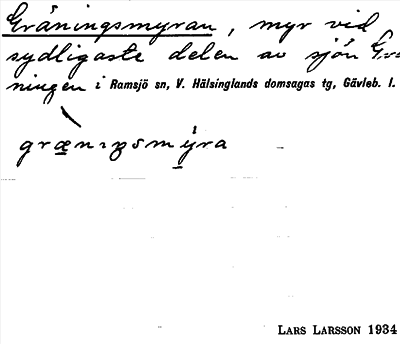 Gräningsmyran, myr vid
sydligaste delen av sjön Grä
ningen i Ramsjö sn, V. Hälsinglands domsagas tg, Gävleb. l.
grænıŋsmýra
LARS LARSSON 1934